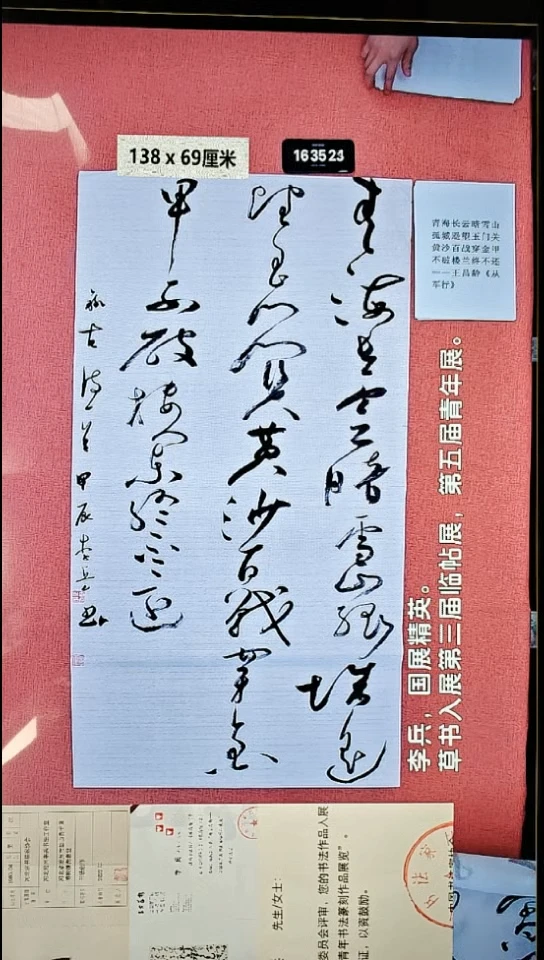 138 x 69厘米
163523
青海长云暗雪山孤城遥
望玉门关黄沙百战穿金
甲不破楼兰终不还
古诗一首 甲辰李兵书
青海长云暗雪山
孤城遥望玉门关
黄沙百战穿金甲
不破楼兰终不还
——王昌龄《从
军行》
李兵，国展精英。
草书入展第三届临帖展，第五届青年展。
先生/女士：
委员会评审，您的书法作品入展
青年书法篆刻作品展览”。
证，以资鼓励。